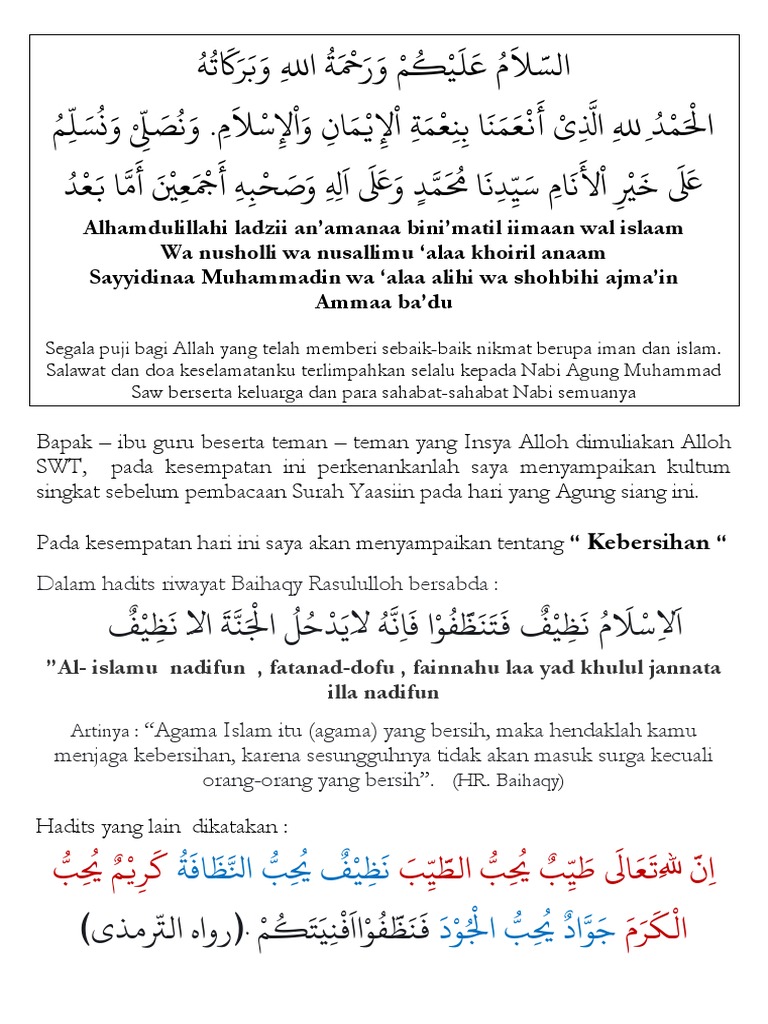 السّلاَمُ عَلَيْكُمْ وَرَحْمَةُ اللهِ وَبَرَكَاتُهُ
الْحَمْدُ ِللهِ الَّذِىْ أَنْعَمَنَا بِنِعْمَةِ اْلإِيْمَانِ وَاْلإِسْلاَمِ. وَنُصَلِّيْ وَنُسَلِّمُ
عَلَى خَيْرِ اْلأَنَامِ سَيِّدِنَا مُحَمَّدٍ وَعَلَى اَلِهِ وَصَحْبِهِ أَجْمَعِيْنَ أَمَّا بَعْدُ
Alhamdulillahi ladzii an’amanaa bini’matil iimaan wal islaam
Wa nusholli wa nusallimu ‘alaa khoiril anaam
Sayyidinaa Muhammadin wa ‘alaa alihi wa shohbihi ajma’in
Ammaa ba’du
Segala puji bagi Allah yang telah memberi sebaik-baik nikmat berupa iman dan islam.
Salawat dan doa keselamatanku terlimpahkan selalu kepada Nabi Agung Muhammad
Saw berserta keluarga dan para sahabat-sahabat Nabi semuanya
Bapak – ibu guru beserta teman – teman yang Insya Alloh dimuliakan Alloh
SWT, pada kesempatan ini perkenankanlah saya menyampaikan kultum
singkat sebelum pembacaan Surah Yaasiin pada hari yang Agung siang ini.
Pada kesempatan hari ini saya akan menyampaikan tentang “ Kebersihan “
Dalam hadits riwayat Baihaqy Rasululloh bersabda :
اَلاِسْلَامُ نَظِيْفٌ فَتَنَظّفُوْا فَاِنَّهُ لاَيَدْخُلُ الْجَنَّةَ الا نَظِيْفٌ
”Al- islamu nadifun , fatanad-dofu , fainnahu laa yad khulul jannata
illa nadifun
Artinya : “Agama Islam itu (agama) yang bersih, maka hendaklah kamu
menjaga kebersihan, karena sesungguhnya tidak akan masuk surga kecuali
orang-orang yang bersih”. (HR. Baihaqy)
Hadits yang lain dikatakan :
اِنّ للهَ تَعَالَى طَيِّبٌ يُحِبُّ الطَّيِّبَ نَظِيْفٌ يُحِبُّ النَّظَافَةُ كَرِيْمٌ يُحِبُّ
الْكَرَمَ جَوَّادٌ يُحِبُّ الْجُوْدَ فَنَظّفُوْااَفْنِيَتَكُمْ .(رواه التّرمذى)